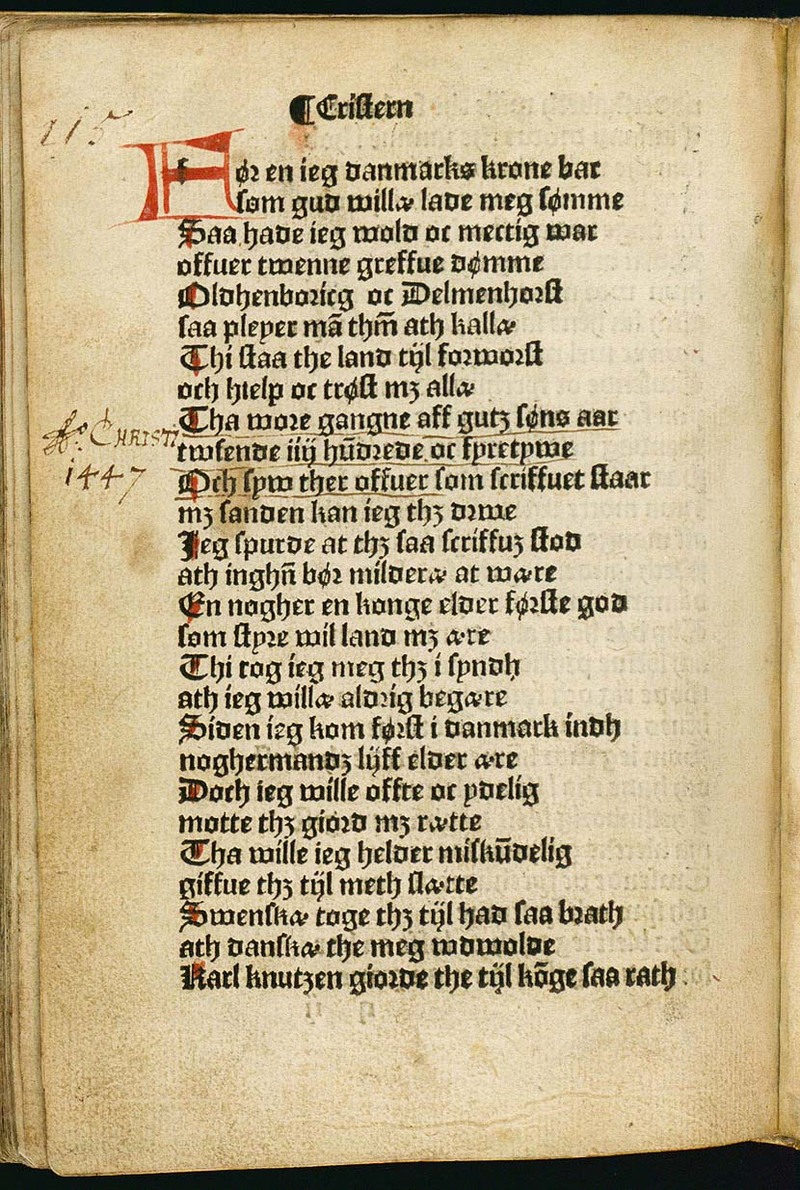 ¶ Cristern
115
Før en ieg danmarks krone bar
som gud willæ lade meg sømme
Saa hade ieg wold oc mectig war
offuer twenne greffue dømme
Oldhenboricg oc Delmenhorst
saa pleyer mā thm̄ ath kallæ
Thi staa the land tijl forworst
och hielp oc trøst mꝫ allæ
Tha wore gangne aff gutꝫ søns aar
twsende iiij hūdrede oc fyretywe
Och syw ther offuer som scriffuet staar
Aº. CHRISTI
1447
mꝫ sanden kan ieg thꝫ drwe
Jeg spurde at thꝫ saa scriffuꝫ stod
ath inghn̄ bør milderæ at wære
En nogher en konge elder første god
som styre wil land mꝫ ære
Thi tog ieg meg thꝫ i syndh
ath ieg willæ aldrig begære
Siden ieg kom først i danmark indh
noghermandꝫ lijff elder ære
Doch ieg wille offte oc ydelig
motte thꝫ giord mꝫ rætte
Tha wille ieg helder miskūdelig
giffue thꝫ tijl meth slætte
Swenskæ toge thꝫ tijl had saa brath
ath danskæ the meg wdwolde
Karl knutzen giorde the tijl kōge saa rath